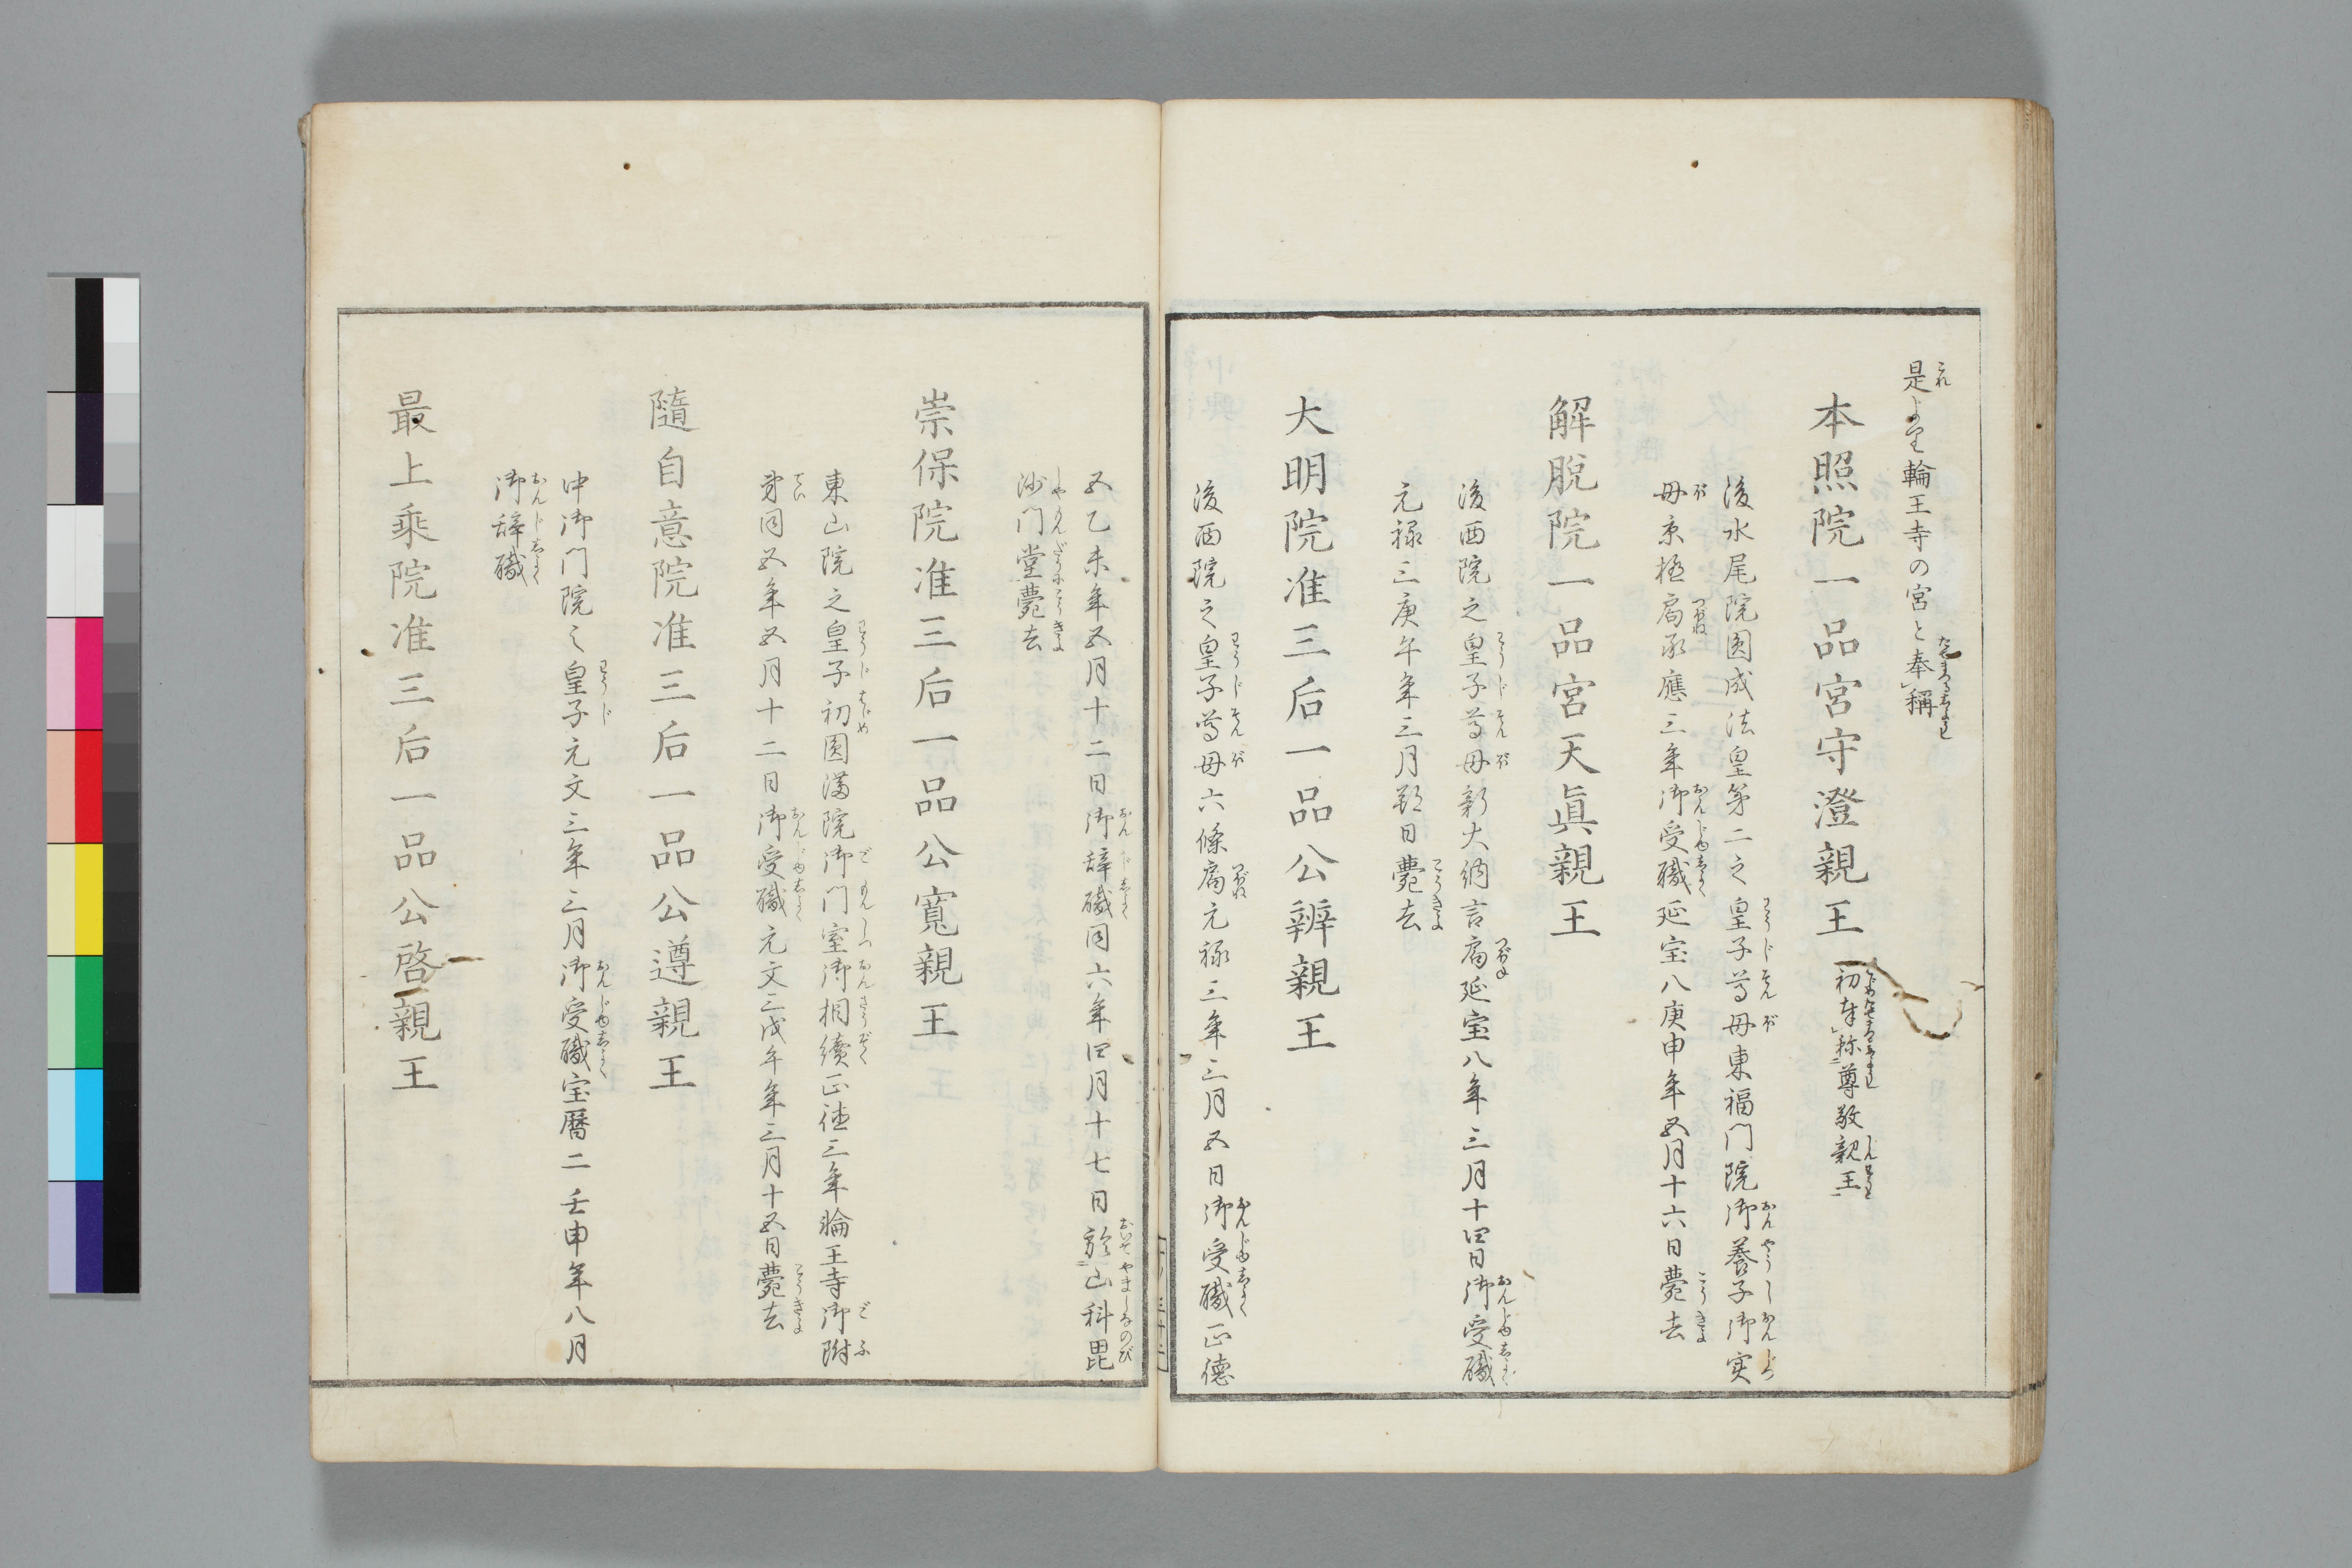 是より輪王寺の宮と奉稱
本照院一品宮守澄親王 初奉称尊敬親王
後水尾院圓成法皇第二之皇子尊母東福門院御養子御実
母京極局承應三年御受職延宝八庚申年五月十六日薨去
解脱院一品宮天眞親王
後西院之皇子尊母新大納言局延宝八年三月十四日御受職
元禄三庚午年三月朔日薨去
大明院准三后一品公辨親王
後西院之皇子尊母六條局元禄三年三月五日御受職正徳
五乙未年五月十二日御辞職同六年四月十七日於山科毘
沙门堂薨去
崇保院准三后一品公寛親王
東山院之皇子初圓満院御门室御相續正徳三年輪王寺御附
弟同五年五月十二日御受職元文三戊午年三月十五日薨去
隨自意院准三后一品公遵親王
中御门院之皇子元文三年三月御受職宝暦二壬申年八月
御辞職
最上乘院准三后一品公啓親王